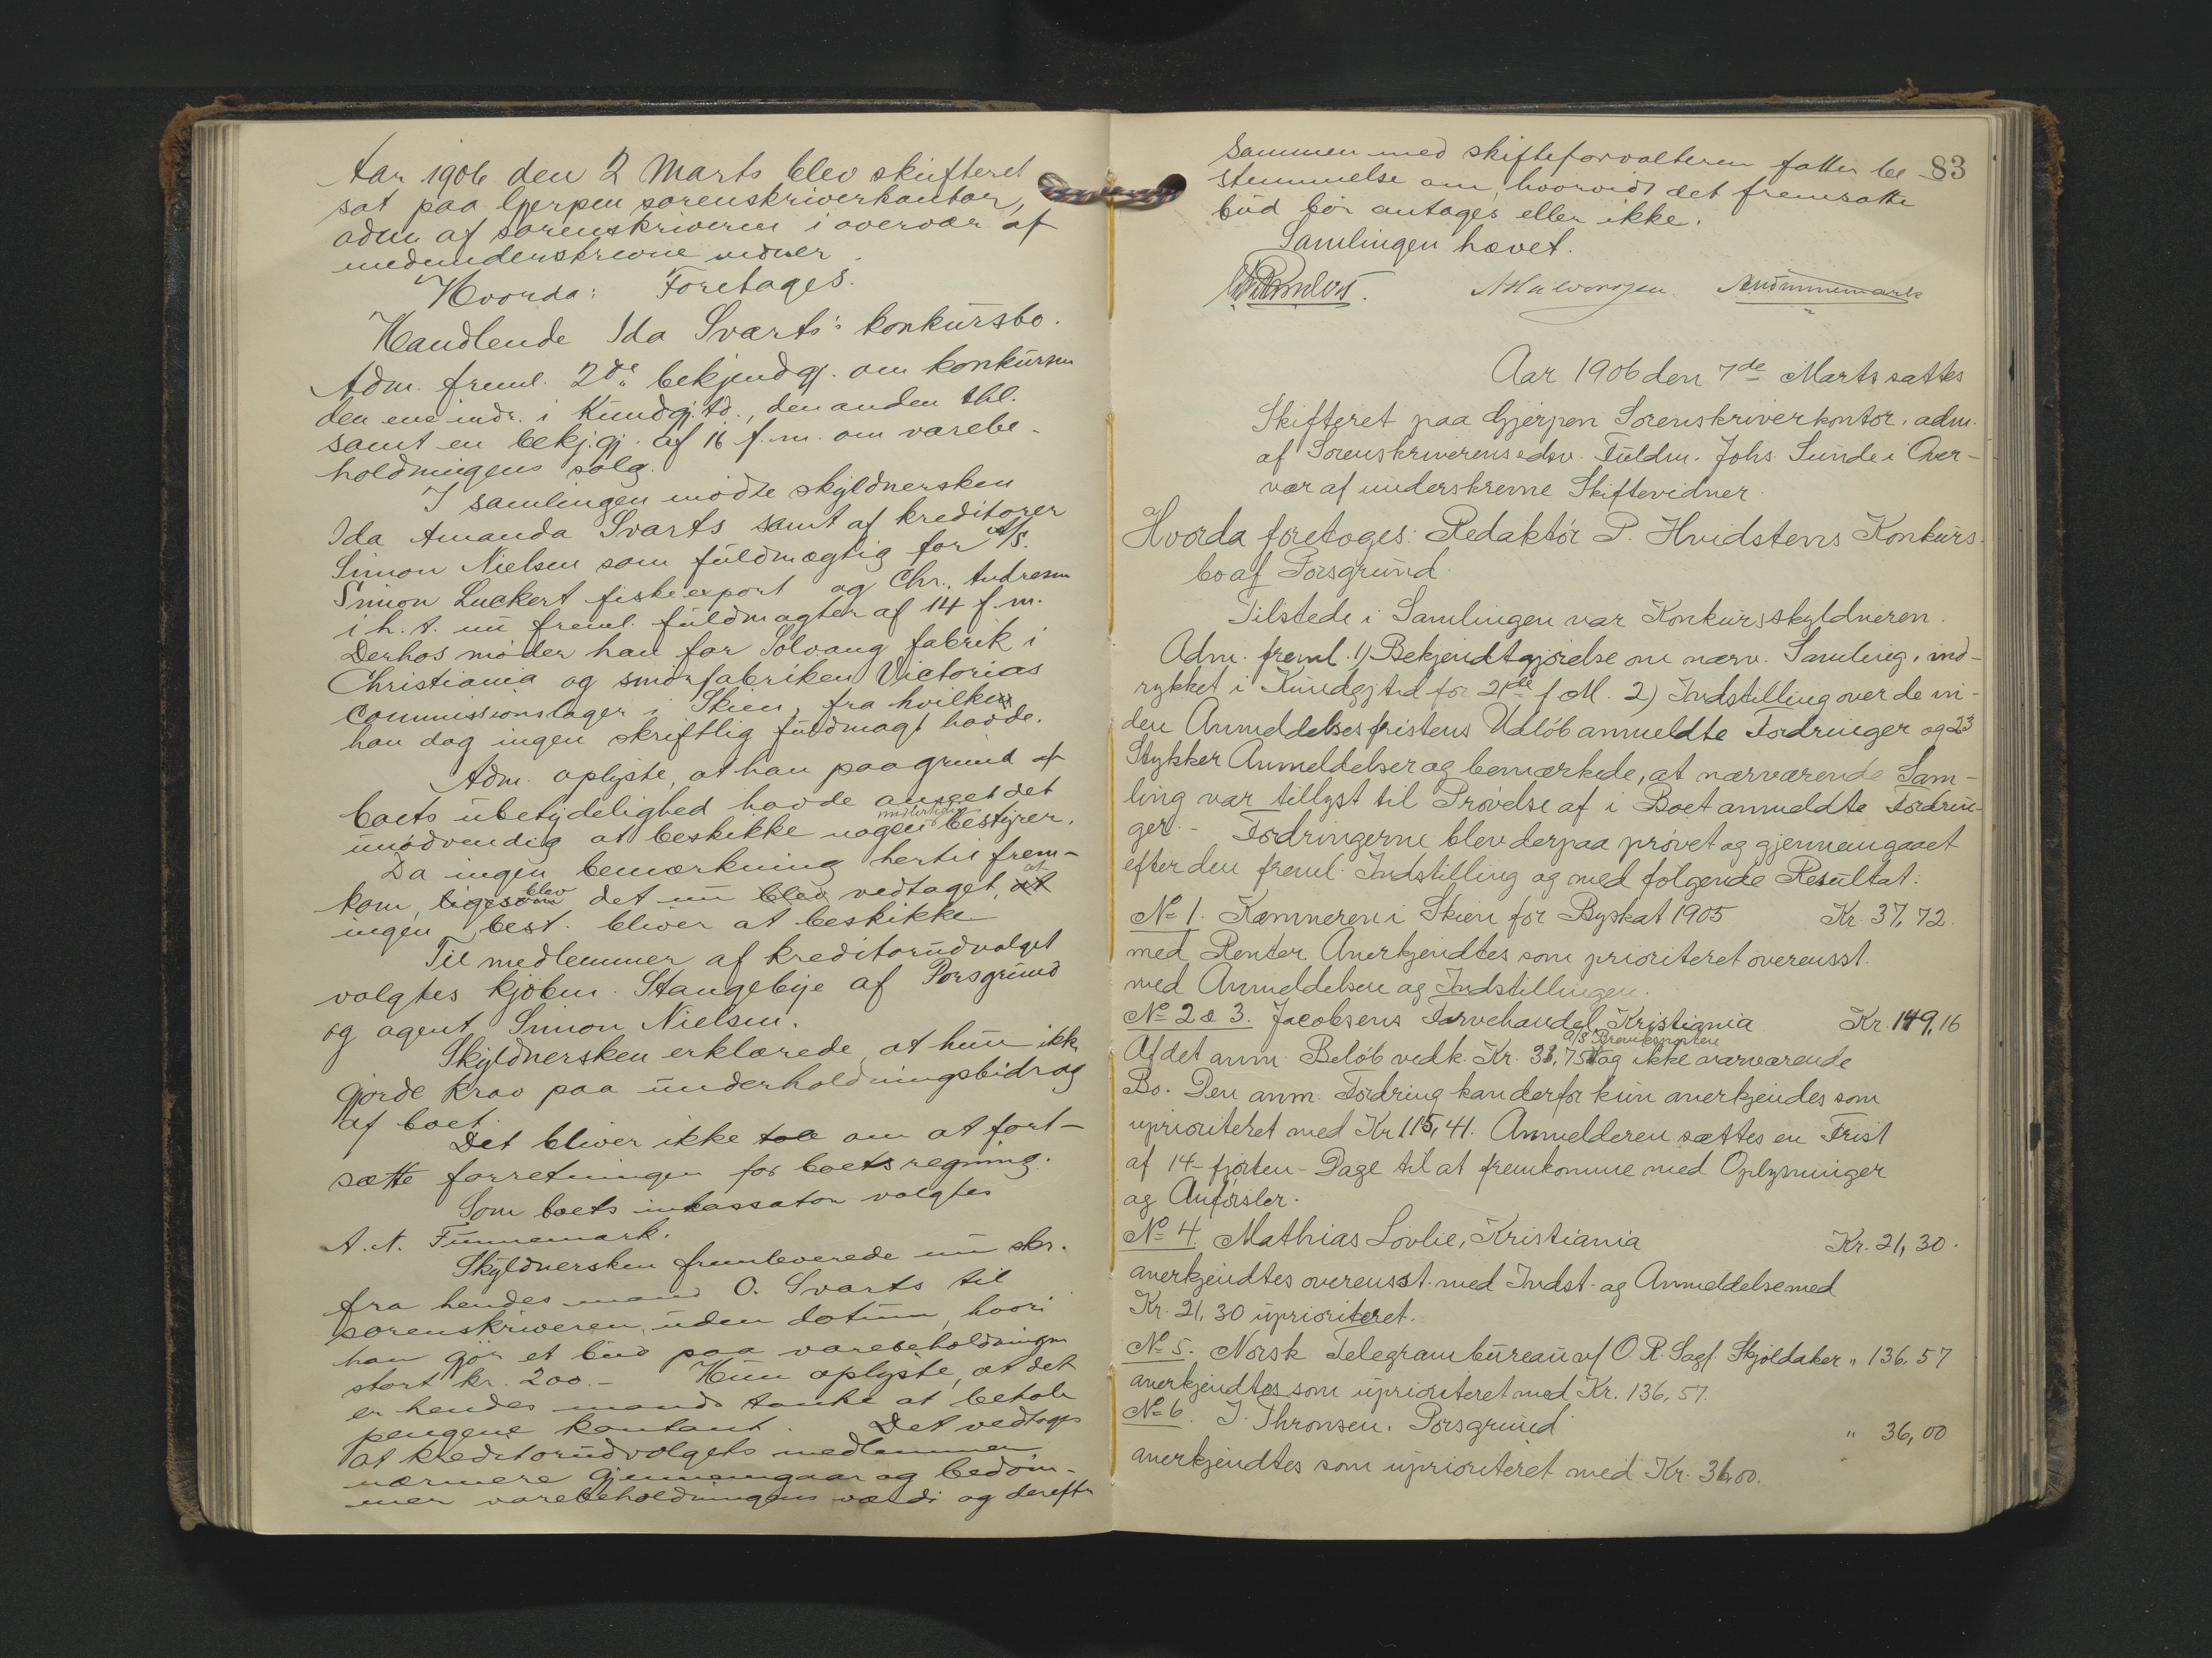 Aar 1906 den 2 Marts blev skifteret
sat paa Gjerpen sorenskriverkontor,
adm af sorenskriveren i overvær af
medunderskrevne vidner.
Hvorda: Foretages.
Handlende Ida Svarts's konkursbo.
Adm. freml. 2de bekjendgj. om konkursen
den ene indr. i Kundgj.td., den anden thl.
samt en bekj.gj. af 16 f.m. om varebe-
holdningens salg.
I samlingen mødte skyldnersken
Ida Amanda Svarts samt af kreditorer
Simon Nielsen som fuldmægtig for A/S.
Simon Luckert fiskeexport og Chr. Andresen
i h. t. nu freml. fuldmagter af 14 f.m.
Derhos møder han for Solvang fabrik i
Christiania og smørfabriken Victorias
commissionslager i Skien, fra hvilke
han dog ingen skriftlig fuldmagt havde.
Adm. oplyste, at han paa grund af
boets ubetydelighed havde anseet det
unødvendig at beskikke nogen midlertidig bestyrer.
Da ingen bemærkning hertil frem-
kom, ligesom blev det nu blev vedtaget, at at
ingen best. bliver at beskikke
Til medlemmer af kreditorudvalget
valgtes kjøbm. Stangebye af Porsgrund
og agent Simon Nielsen.
Skyldnersken erklærede, at hun ikke
gjorde krav paa underholdningsbidrag
af boet.
Det bliver ikke tale om at fort-
sætte forretningen for boets regning.
Som boets inkassator valgtes
A. N. Finnemark.
Skyldnersken fremleverede nu skr.
fra hendes mand O. Svarts til
sorenskriveren, uden datum, hvori
han gjør et bud paa varebeholdningen
stort kr. 200.- Hun oplyste, at det
er hendes mands tanke at betale
pengene kontant. Det vedtoges
at kreditorudvalgets medlemmer
nærmere gjennemgaar og bedøm-
mer varebeholdningens værdi og derefter
83
sammen med skifteforvalteren fatter be-
stemmelse om, hvorvidt det fremsatte
bud bør antages eller ikke.
Samlingen hævet.
Aar 1906 den 7de Marts sattes
Skifteret paa Gjerpen Sorenskriverkontor, adm.
af Sorenskriverens edsv. Fuldm. Johs. Sunde i Over-
vær af underskrevne Skiftevidner.
Hvorda foretoges: Redaktør P. Hvidstens Konkurs-
bo af Porsgrund.
Tilstede i Samlingen var Konkursskyldneren.
Adm. freml. 1) Bekjendtgjørelse om nærv. Samling, ind-
rykket i Kundgjtid for 21de f M. 2) Indstilling over de in-
den Anmeldelsesfristens Udløb anmeldte Fordringer og 23
Stykker Anmeldelser og bemærkede, at nærværende Sam-
ling var tillyst til Prøvelse af i Boet anmeldte Fordrin-
ger. - Fordringerne blev derpaa prøvet og gjennemgaaet
efter den freml. Indstilling og med følgende Resultat:
No 1. Kæmneren i Skien for Byskat 1905 Kr. 37,72.
med Renter. Anerkjendtes som prioriteret overensst.
med Anmeldelsen og Indstillingen.
No 2 & 3. Jacobsens Farvehandel, Kristiania Kr. 149,16
Af det anm. Beløb vedk. Kr. 33,75 A/S og ikke nærværende
Bo. Den anm. Fordring kan derfor kun anerkjendes som
uprioriteret med Kr 115,41. Anmelderen sættes en Frist
af 14 - fjorten - Dage til at fremkomme med Oplysninger
og Anførsler.
No 4. Mathias Lovlie, Kristiania Kr. 21,30.
anerkjendtes overensst. med Indst. og Anmeldelse med
Kr. 21,30 uprioriteret.
No 5. Norsk Telegrambureau v/ O. R. Sagf. Skjoldaker " 136,57
anerkjendtes som uprioriteret med Kr. 136,57.
No 6. J. Thronsen, Porsgrund " 36,00
anerkjendtes som uprioriteret med Kr. 36,00.